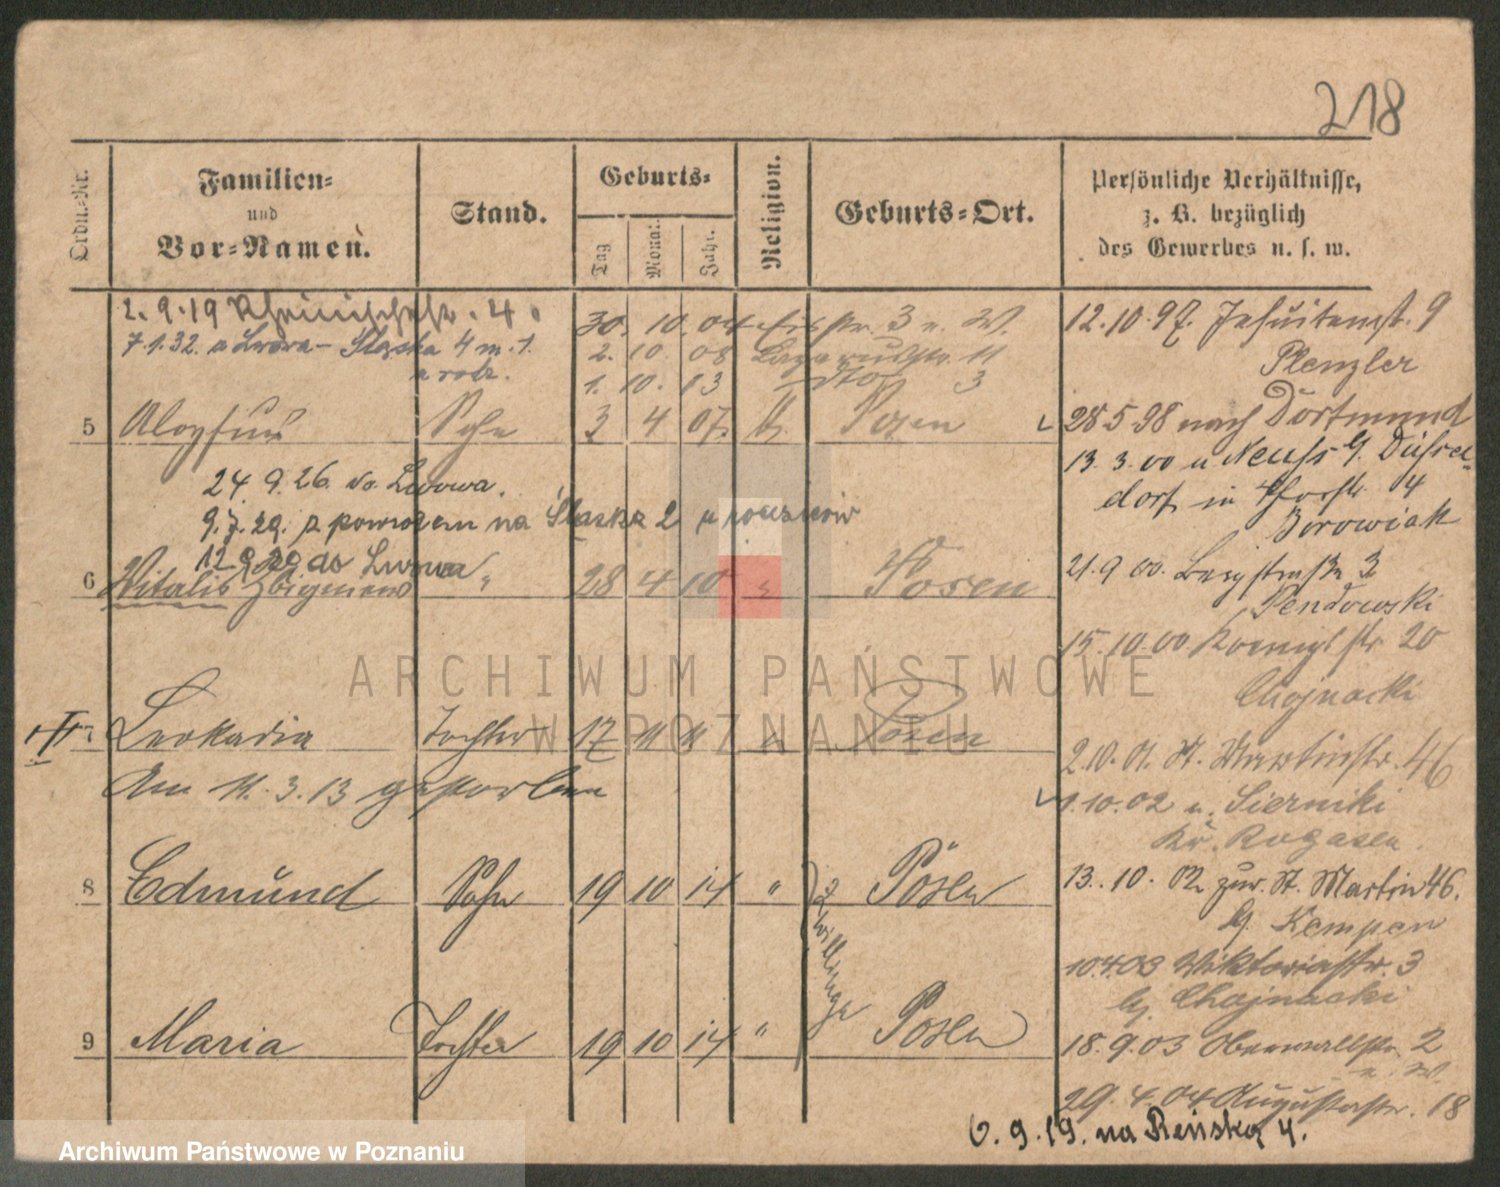 218
Ordn.-Nr.
Familien-
und
Vor-Namen.
Stand.
Geburts-
Tag
Monat.
Jahr.
Religion.
Geburts-Ort.
Persönliche Verhältnisse,
z. B. bezüglich
des Gewerbes u. s. w.
2.9.19 Rheinischestr. 4
7.1.32. z Lwowa - Śląska 4 m. 1.
u rodz.
30. 10. 04 3 u. W.
2. 10. 08 Lazarusstr. 11
1. 10. 13 dto 3
5 Aloysius Sohn 3 4 07. k. Posen
24. 9. 26. do Lwowa.
9.7.29. z powrotem na Śląska 2 u rodziców
12 9 29 do Lwowa
6 Vitalis Zbigniew " 28 4 10 Posen
7 Leokadia Tochter 17 11 11 Posen
Am 11.3.13 gestorben
8 Edmund Sohn 19 10 14 " Posen
Zwillinge
9 Maria Tochter 19 10 14 " Posen
12.10.97. Jesuitenst. 9
Plenzler
28.5.98 nach Dortmund
13.3.00 u Neuss b/ Düssel-
dorf in 4
Borowiak
21.9 00. Bergstraße 3
Pendowski
15.10.00 Koenigsstr 20
Chojnacki
2.10.01. St. Martinstr. 46
1.10.02 n. Sierniki
Kr. Rogasen.
13.10.02 zur. St. Martin 46.
bj. Kempen
10.4.03 Viktoriastr. 3
bj. Chojnacki
18.9.03 Oberwallstr. 2
u. W.
29.4.04 Augustastr. 18
6.9.19. na Reńską 4.
ARCHIWUM PAŃSTWOWE
W POZNANIU
Archiwum Państwowe w Poznaniu